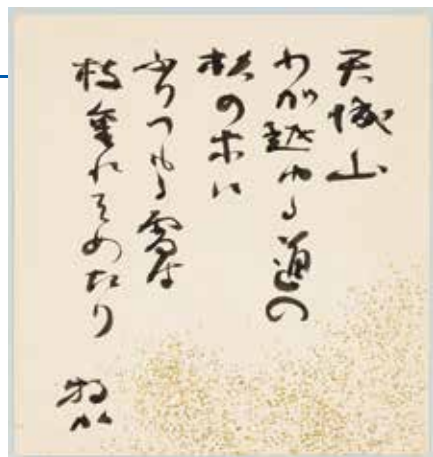 天城山
わが越ゆる道の
杉の木に
ふりつもる雪は
枝垂れそめたり
牧水